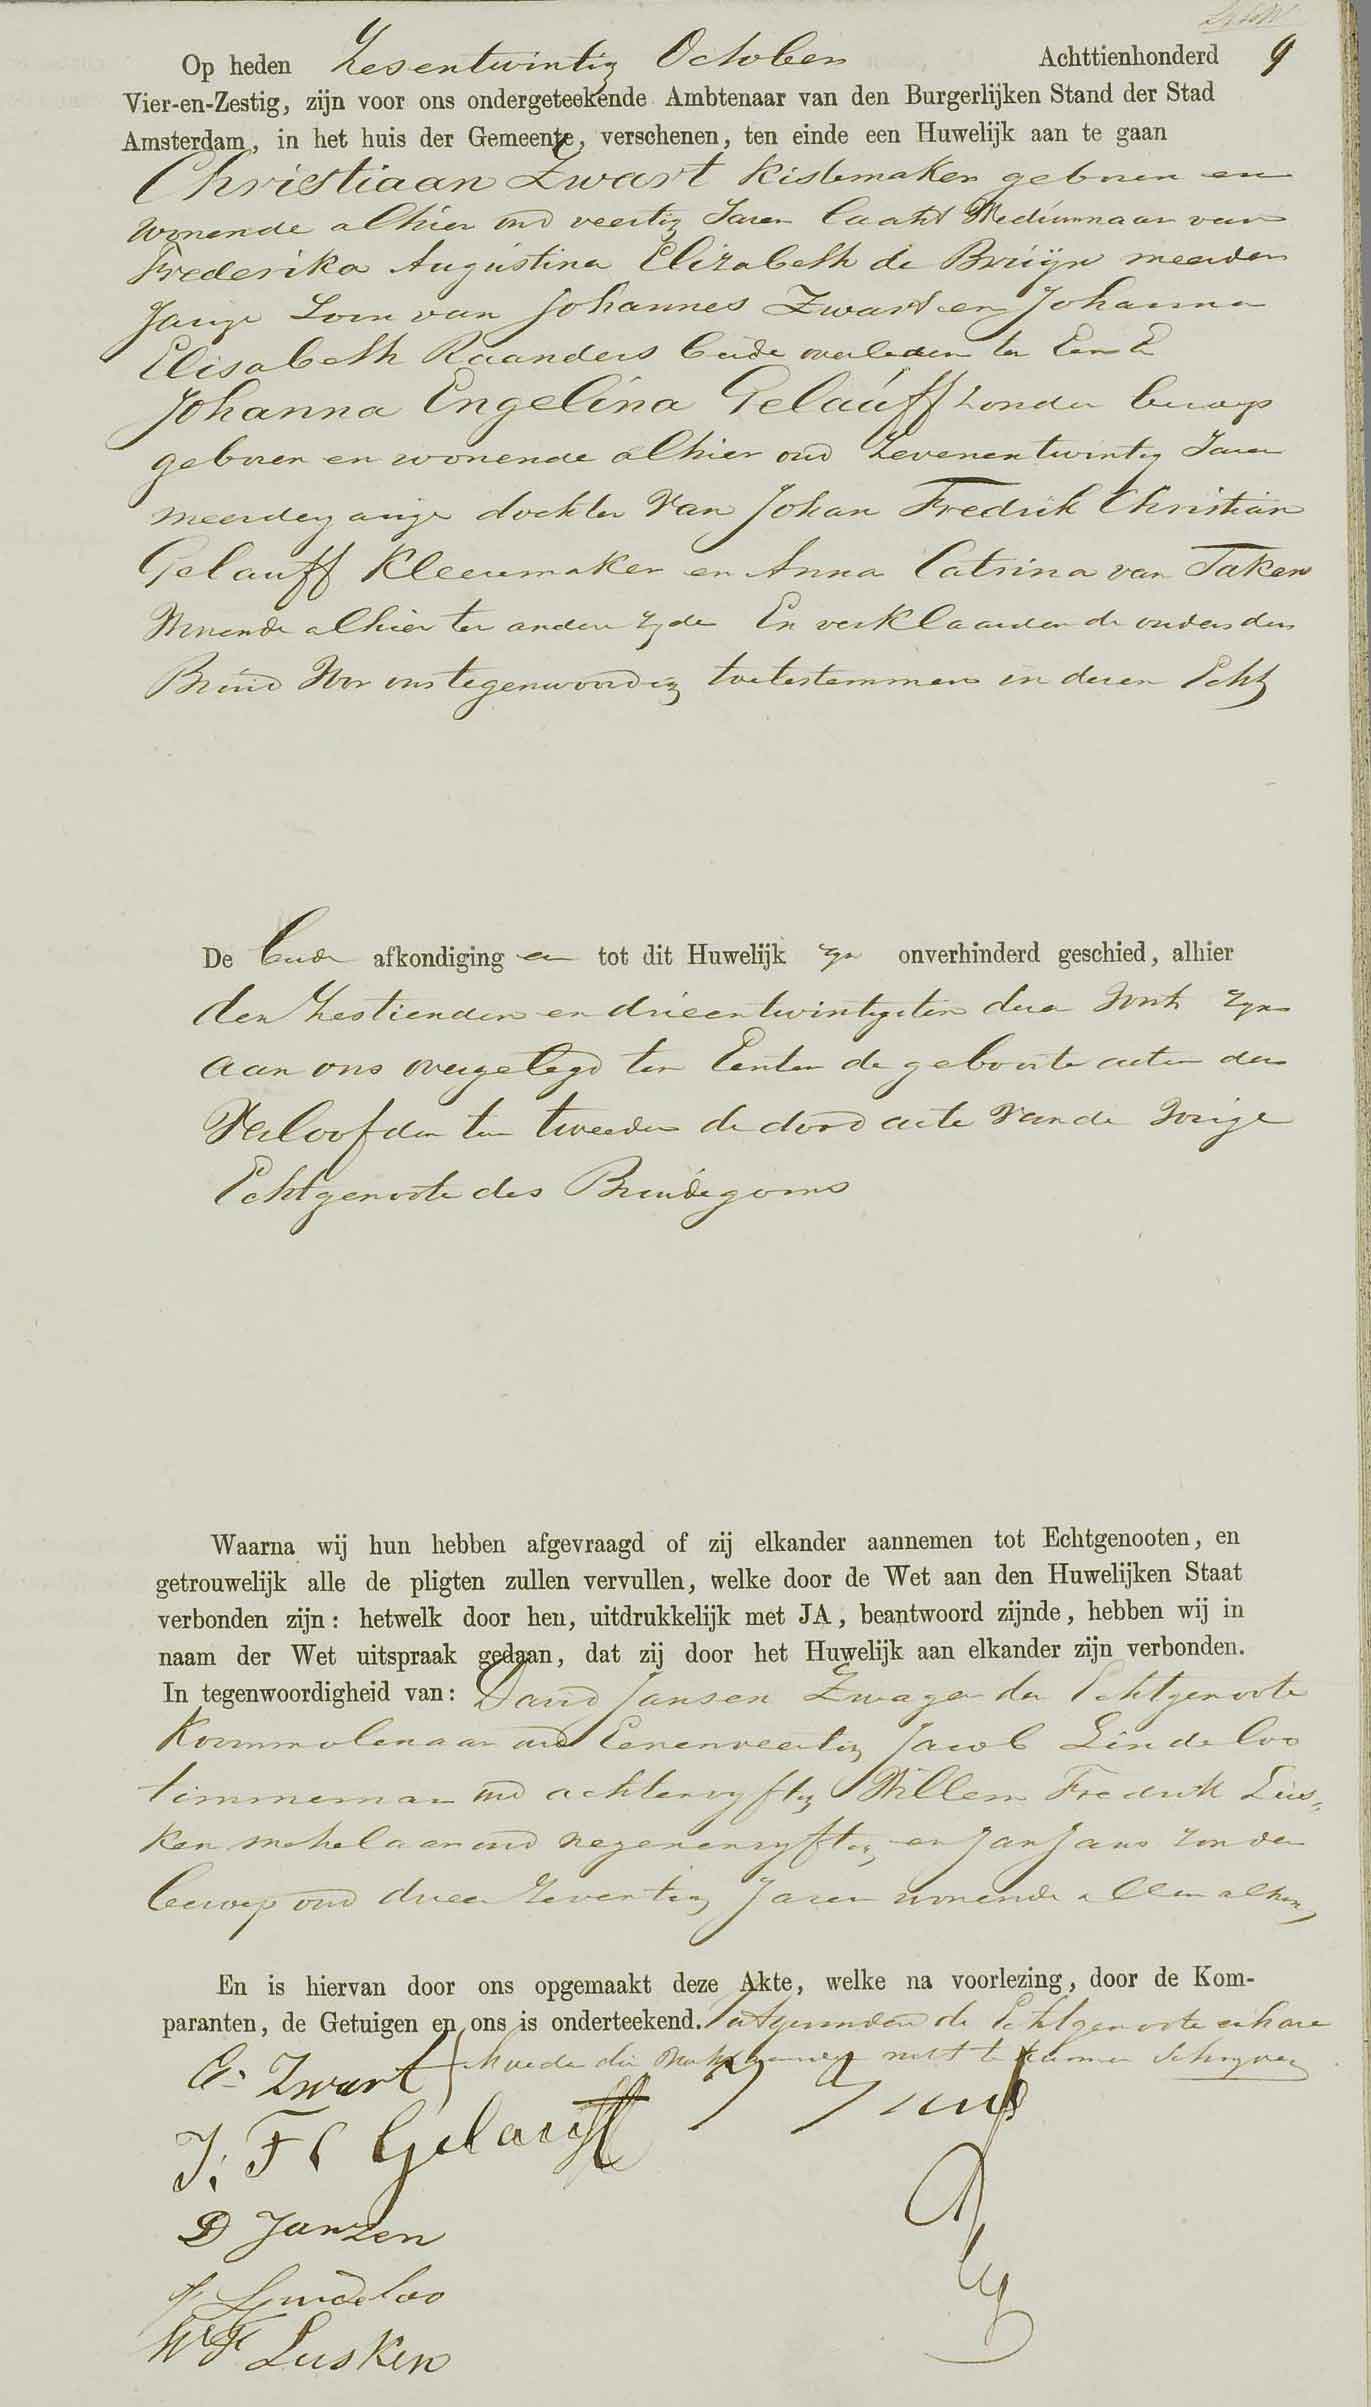 Op heden Zesentwintig October Achttienhonderd 9
Vier-en-Zestig, zijn voor ons ondergeteekende Ambtenaar van den Burgerlijken Stand der Stad
Amsterdam, in het huis der Gemeente, verschenen, ten einde een Huwelijk aan te gaan
Christiaan Zwart Kistemaker geboren en
wonende alhier oud veertig Jaren laatst Weduwnaar van
Frederika Augustina Elizabeth de Bruijn meerder
Jarige Zoon van Johannes Zwart en Johanna
Elisabeth Raanders beide overleden ter Eenre
Johanna Engelina Gelauff zonder beroep
geboren en wonende alhier oud Zevenentwintig Jaren
meerderjarige dochter van Johan Fredrik Christian
Gelauff Kleermaker en Anna Catrina van Taken
Wonende alhier ter andere zyde En verklaarden de ouders der
Bruid Voor ons tegenwoordig toetestemmen in dezen Echt
De beide afkondiging en tot dit Huwelijk zyn onverhinderd geschied, alhier
den Zestienden en drieentwintigsten dezer Voorts zyn
aan ons overgelegd ten Eersten de geboorte acten der
Verloofden ten tweeden de dood acte van de Vorige
Echtgenoote des Bruidegoms
Waarna wij hun hebben afgevraagd of zij elkander aannemen tot Echtgenooten, en
getrouwelijk alle de pligten zullen vervullen, welke door de Wet aan den Huwelijken Staat
verbonden zijn: hetwelk door hen, uitdrukkelijk met JA, beantwoord zijnde, hebben wij in
naam der Wet uitspraak gedaan, dat zij door het Huwelijk aan elkander zijn verbonden.
In tegenwoordigheid van: David Jansen Zwager der Echtgenoote
Koornmolenaar oud Eenenveertig Jacob Lindeloo
timmerman oud achtenvyftig Willem Fredrik Lus-
ken makelaar oud negenenvyftig en Jan Jans zonder
beroep oud drieen Zeventig Jaren wonende allen alhier
En is hiervan door ons opgemaakt deze Akte, welke na voorlezing, door de Kom-
paranten, de Getuigen en ons is onderteekend. uitgezonderd de Echtgenoote en hare
Moeder die verklaarden niet te kunnen Schryven
C. Zwart
J. F C Gelauff
D Janzen
J Lindeloo
W F Lusken